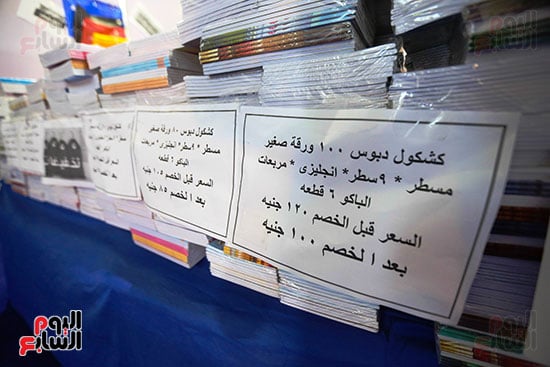 كشكول دبوس ١٠٠ ورقة صغير
مسطر * ٩سطر* انجليزى * مربعات
الباكو ٦ قطعه
السعر قبل الخصم ١٢٠ جنيه
بعد ا لخصم ١٠٠ جنيه
كشكول دبوس ٨٠ ورقة صغير
مسطر * ٩سطر* انجليزى * مربعات
الباكو ٦ قطعه
السعر قبل الخصم ١٠٥ جنيه
بعد ا لخصم ٨٥ جنيه
تخفيضات
اليوم السابع